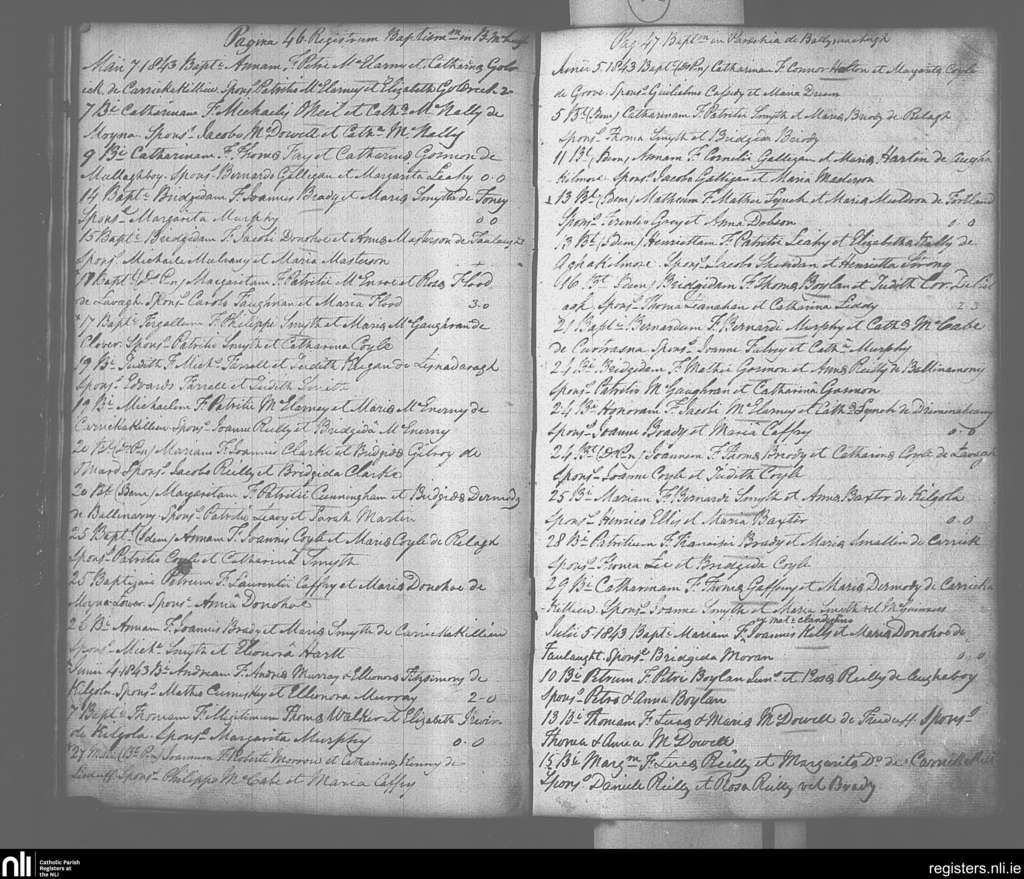 Pagina 46. Registrum Baptism in B.
Maii 7 1843 Bapt. Annam F. Petri McElarney et Catharinæ Golrick
de Carrickekillew Spons. Patritio McElarney et Elizabeth Golrick
7 Bi Catharinam F. Michaelis O'Neil et Cath. McNally de
Moyna. Spons. Jacobo McDowell et Cath. McNally
9 Bi Catharinam F. Thomæ Fay et Catharinæ Gosmon de
Mullaghboy. Spons. Bernardo Galligan et Margarita Leahy 0-0
14 Bapt. Bridgidam F. Joannis Brady et Mariæ Smyth de Foney
Spons. Margarita Murphy 0-0
15 Bapt. Bridgidam F. Jacobi Donohoe et Annæ Masterson de Faulaught
Spons. Michaele Mulvany et Maria Masterson
17 Bapt. Margaritam F. Patritii McEnroe et Rosæ Flood
de Lavagh Spons. Carolo Vaughnan et Maria Flood 3-0
17 Bapt. F. Philippi Smyth et Mariæ McGaughran de
Clover. Spons. Patritio Smyth et Catharina Coyle
19 Bi Judith F. Mich. Farrell et Judith Keegan de Lisnadaragh
Spons. Edwardo Farrell et Judith
19 Bi Michaelem F. Patritii McElarney et Mariæ McEnerny de
Carrickekillew Spons. Joanne Reilly et Bridgida McEnerny
20 Bt Mariam F. Joannis Clarke et Bridgidæ Gilroy de
Spons. Jacobo Reilly et Bridgida Clarke
20 Bt (Idem) Margaritam F. Patritii Cunningham et Bridgidæ Dermody
de Ballinarry. Spons. Patritio Leavy et Sarah Martin
25 Bapt. (Idem) Annam F. Joannis Coyle et Mariæ Coyle de Relagh
Spons. Patritio Coyle et Catharina Smyth
25 Baptizavi Petrum F. Laurentii Caffry et Mariæ Donohoe de
Moyna Lower Spons. Anna Donohoe
26 Bi Annam F. Joannis Brady et Mariæ Smyth de Carrickekillew
Spons. Mich. Smyth et Elenora Hart
Junii 4 1843 Bi Andream F. Andreæ Murray & Ellenora Fitzsimons de
Kilgola. Spons. Matheo Cumiskey et Ellenora Murray 2-0
7 Bapt. Thomam F. Illigitimum Thomæ Walker et Elizabeth
de Kilgola. Spons. Margarita Murphy 0-0
27 Joannem F. Roberti Morrow et Catharinæ Kenny de
Spons. Philippo McCabe et Maria Caffry
Pag. 47 Baptm in Parochia de Ballymachugh
Junii 5 1843 Bapt. Catharinam F. Connor Halton et Margaritæ Coyle
de Grove Spons. Gulielmo Cassidy et Maria Drum
5 Bt (Idem) Catharinam F. Patritii Smyth et Mariæ Brody de Relagh
Spons. Thoma Smyth et Bridgida Brody
11 Bt (Idem) Annam F. Cornelii Galligan et Mariæ Hartin de Augha
Kilmore. Spons. Jacobo Galligan et Maria Masterson
13 Bt (Idem) Matheum F. Mathei Lynch et Mariæ Muldoon de Fortland
Spons. Terentio Gray et Anna Dobson 0-0
13 Bt (Idem) Henriettam F. Patritii Leahy et Elizabethæ Kelly de
Aghakilmore. Spons. Jacobo Sheridan et Henrietta Strong
16 Bt (Idem) Bridgidam F. Thomæ Boylan et Judith Cox
Spons. Thoma Lanahan et Catharina Liddy 2-3
21 Bapt. Bernardum F. Bernardi Murphy et Cath. McCabe
de Curtrasna Spons. Joanne Fulvey et Cath. Murphy
24 Bt Bridgidam F. Mathei Gosmon et Annæ Reilly de Ballinamony
Spons. Patritio McGaughran et Catharina Gosmon
24 Bt Honoram F. Jacobi McElarney et Cath. Lynch de
Spons. Joanne Brady et Maria Caffry 0-0
24 Bt Joannem F. Thomæ Brody et Catharinæ Coyle de Lavagh
Spons. Joanne Coyle et Judith Coyle
25 Bt Mariam F. Bernardi Smyth et Annæ Baxter de Kilgola
Spons. Henrico Ellis et Maria Baxter 0-0
28 Bt Patritium F. Francisci Brady et Mariæ Smullen de Carrick
Spons. Thoma Lee et Bridgida Coyle
29 Bi Catharinam F. Thomæ Gaffney et Mariæ Dermody de Carricke
Killew. Spons. Joanne Smyth et Maria Smyth vel McGuinness
ex mat. clandestinis
Julii 5 1843 Bapt. Mariam F. Joannis Kelly et Mariæ Donohoe de
Faulaught Spons. Bridgida Moran 0-0
10 Bi Petrum F. Petri Boylan Jun. et Rosæ Reilly de Aughaboy
Spons. Petro & Anna Boylan
13 Bi Thomam F. Lucæ & Mariæ McDowell de Spons.
Thoma & Anna McDowell
15 Bi Margm F. Lucæ Reilly et Margarita Do. de Carrick Kill
Spons. Daniele Reilly et Rosa Reilly vel Brady
nli
Catholic Parish
Registers at
the NLI
registers.nli.ie